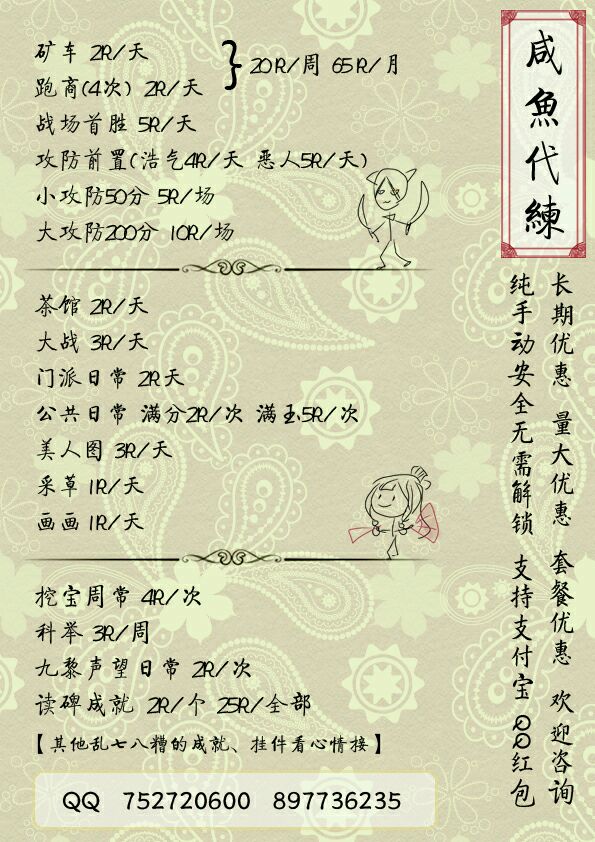 咸魚代練
长期优惠 量大优惠 套餐优惠 欢迎咨询
纯手动安全无需解锁 支持支付宝 QQ红包
矿车 2R/天
跑商(4次) 2R/天
} 20R/周 65R/月
战场首胜 5R/天
攻防前置(浩气4R/天 恶人5R/天)
小攻防50分 5R/场
大攻防200分 10R/场
茶馆 2R/天
大战 3R/天
门派日常 2R天
公共日常 满分2R/次 满玉5R/次
美人图 3R/天
采草 1R/天
画画 1R/天
挖宝周常 4R/次
科举 3R/周
九黎声望日常 2R/次
读碑成就 2R/个 25R/全部
【其他乱七八糟的成就、挂件看心情接】
QQ 752720600 897736235